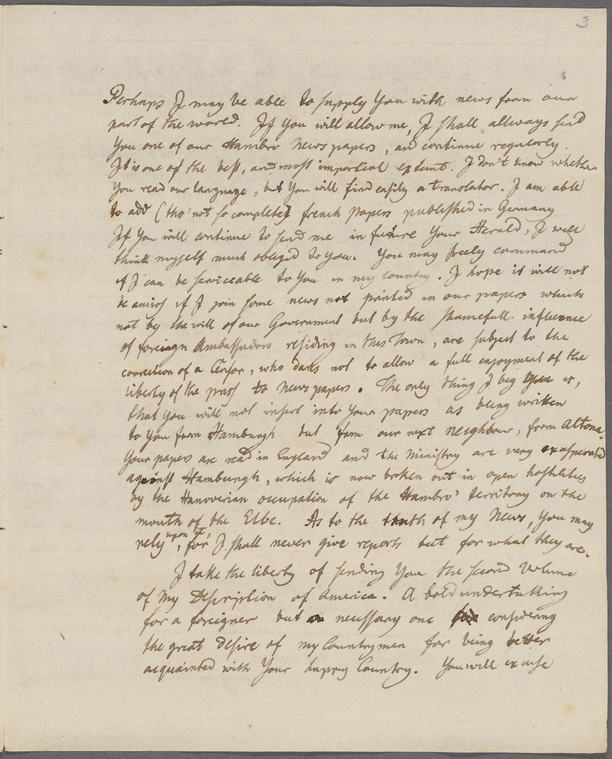 3
Perhaps I may be able to supply You with news from our
part of the world. If You will allow me, I shall allways send
You one of our Hambro News papers, and continue regularly.
It is one of the best, and most impartial extant. I don't know whether
You read our language, but You will find easily a translator. I am able
to add (tho' not so complete) french papers published in Germany
If You will continue to send me in future Your Herald, I will
think myself much obliged to You. You may freely command
if I can be serviceable to You in my country. I hope it will not
be amiss if I join some news not printed in our papers which
not by the will of our Government but by the shamefull influence
of foreign Ambassadors residing in this Town, are subject to the
correction of a Censor, who dares not to allow a full enjoyment of the
liberty of the press to News papers. The only thing I beg is,
that You will not insert into Your papers as being written
to You from Hamburgh but from our next neighbour, from Altona.
Your papers are read in England and the Ministry are very exasperated
against Hamburgh, which is now broken out in open hostilities
by the Hanoverian occupation of the Hambro' territory on the
mouth of the Elbe. As to the truth of my News, You may
rely upon it, for I shall never give reports but for what they are.
I take the liberty of sending You the second Volume
of my Description of America. A bold undertaking
for a foreigner but a necessary one considering
the great desire of my Countrymen for being better
acquainted with Your happy Country. You will excuse